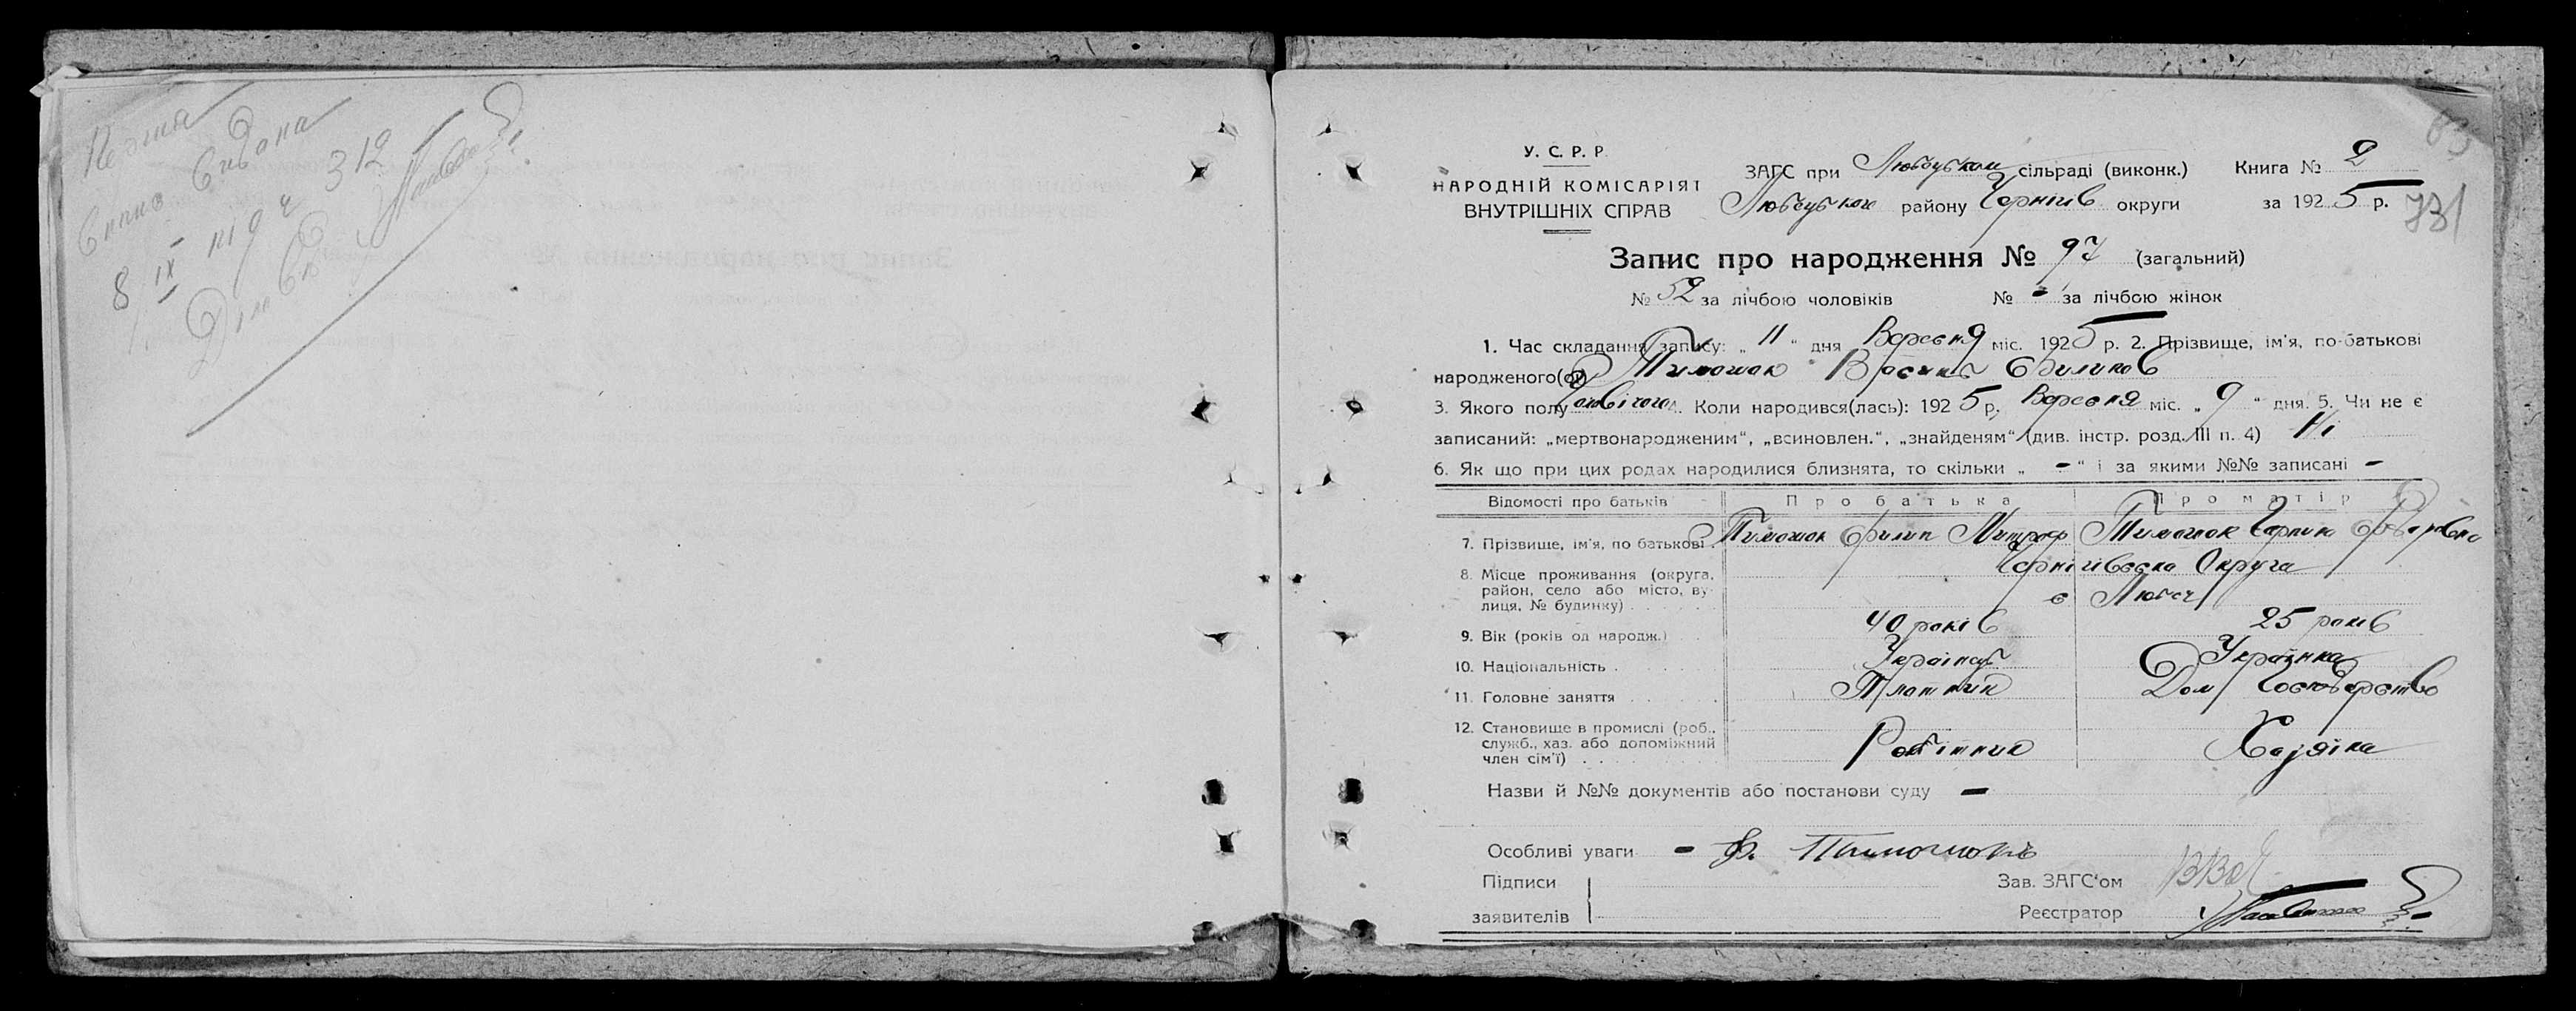 Копия
Випис Видана
8/IX № 312
У. С. Р. Р.
НАРОДНІЙ КОМІСАРІЯТ
ВНУТРІШНІХ СПРАВ
ЗАГС при Любецьком сільраді (виконк.) Книга № 2
Любецького району Чернігів округи за 1925 р.
731
Запис про народження № 97 (загальний)
№ 52 за лічбою чоловіків № - за лічбою жінок
1. Час складання запису: „ 11 " дня Вересня міс. 1925 р. 2. Прізвище, ім'я, по-батькові
народженого(ої) Тимошок Василь Филипов
3. Якого полу чоловічого 4. Коли народився(лась): 1925 р. Вересня міс. „ 9 " дня. 5. Чи не є
записаний: „мертвонародженим", „всиновлен.", „знайденям" (див. інстр. розд. III п. 4) Ні
6. Як що при цих родах народилися близнята, то скільки „ - " і за якими №№ записані -
Відомості про батьків Про батька Про матір
7. Прізвище, ім'я, по батькові. Тимошок Филип Митроф Тимошок Федоровна
8. Місце проживання (округа, Чернігівська Округа
район, село або місто, ву-
лиця, № будинку) . . . . . . с Любеч
9. Вік (років од народж.) . 40 років 25 років
10. Національність . . . . . . Українець Українка
11. Головне заняття . . . . . . Плотник Дом Господарство
12. Становище в промислі (роб.,
служб., хаз. або допоміжний Робітник Хазяїка
член сім'ї) . . . . . . . .
Назви й №№ документів або постанови суду -
Особливі уваги - Ф. Тимошокъ
Підписи Зав. ЗАГС'ом
заявителів Реєстратор